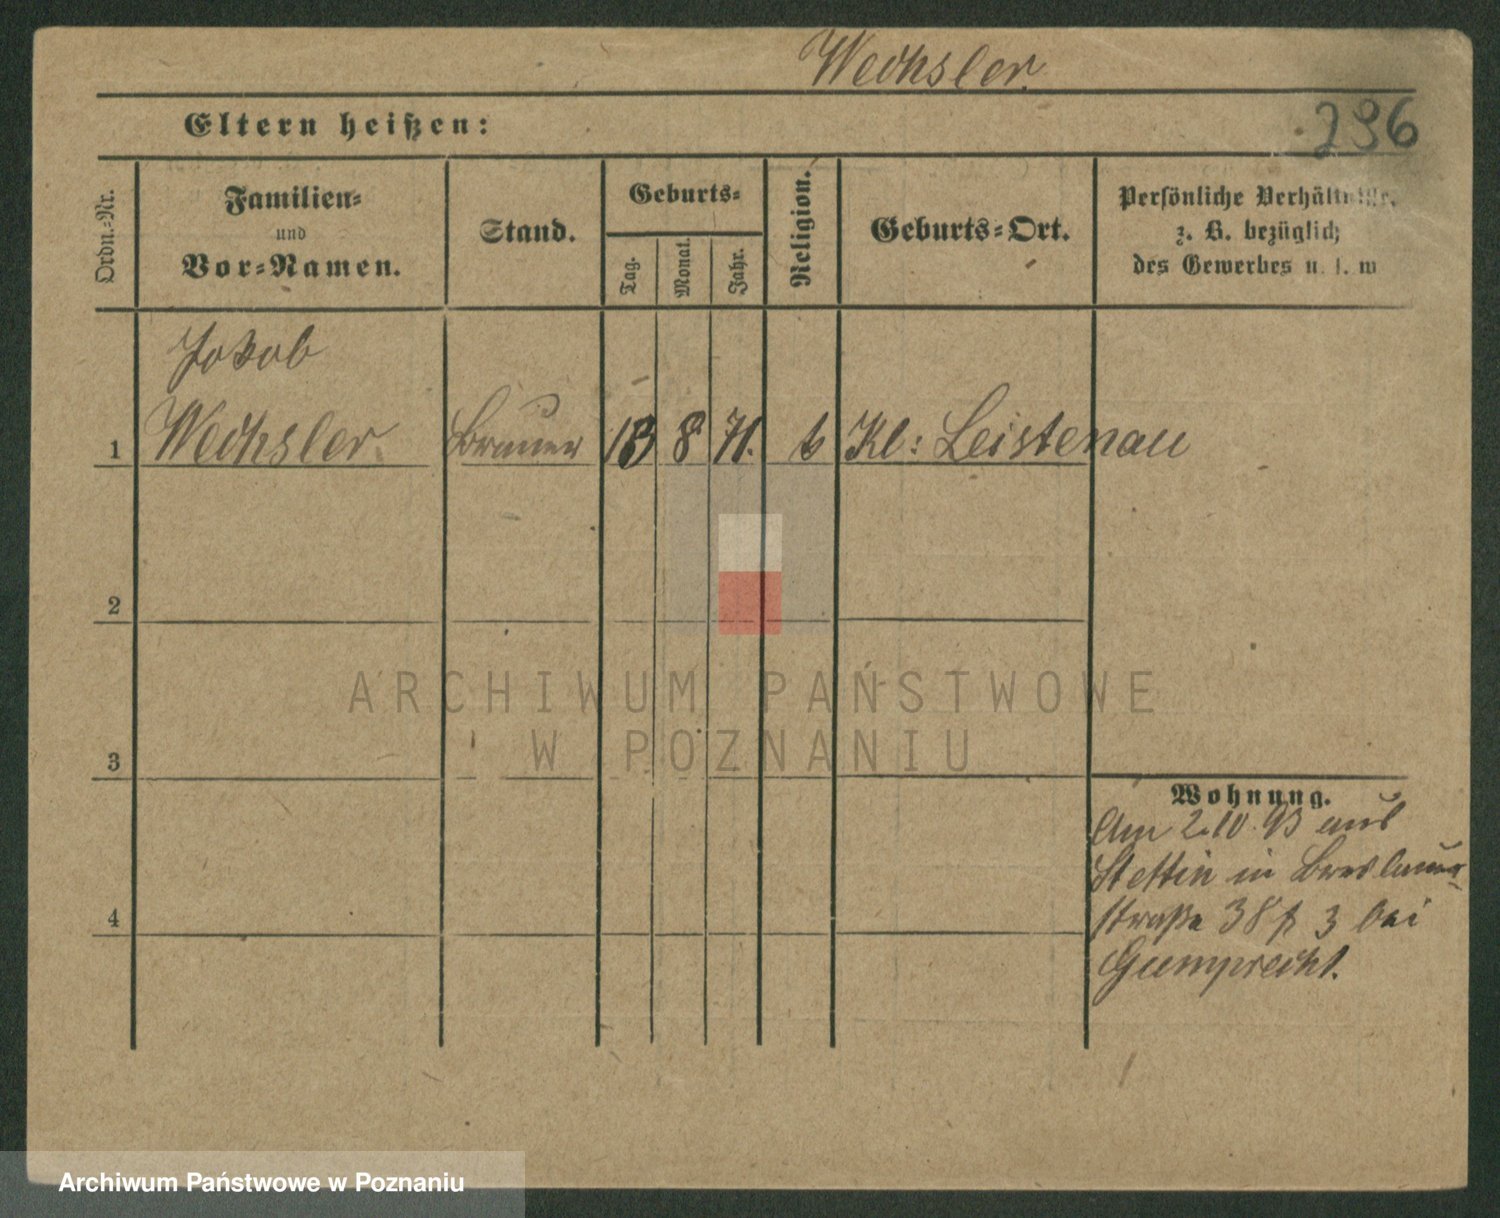 Wechsler.
Eltern heißen:
296
Ordn.-Nr.
Familien-
und
Vor-Namen.
Stand.
Geburts-
Tag.
Monat.
Jahr.
Religion.
Geburts-Ort.
Persönliche Verhältnisse,
z. B. bezüglich
des Gewerbes u. s. w
Jakob
1 Wechsler. Brauer 13 8 71. Kl: Leistenau
2
ARCHIWUM PAŃSTWOWE
W POZNANIU
3
Wohnung.
Am 2.10.93 aus
Stettin in Breslauer-
4
straße 38 3 bei
Gumprecht.
Archiwum Państwowe w Poznaniu